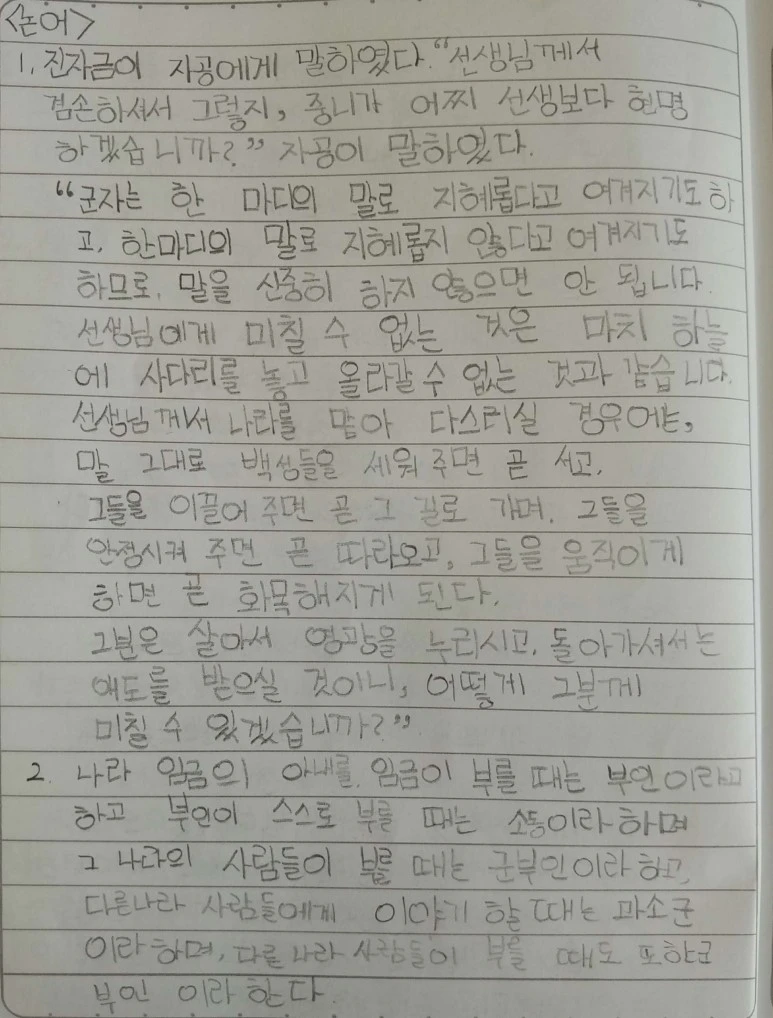 <논어>
1. 진자금이 자공에게 말하였다. "선생님께서
겸손하셔서 그렇지, 중니가 어찌 선생보다 현명
하겠습니까?" 자공이 말하였다.
"군자는 한 마디의 말로 지혜롭다고 여겨지기도 하
고, 한마디의 말로 지혜롭지 않다고 여겨지기도
하므로, 말을 신중히 하지 않으면 안 됩니다.
선생님에게 미칠 수 없는 것은 마치 하늘
에 사다리를 놓고 올라갈 수 없는 것과 같습니다.
선생님께서 나라를 맡아 다스리실 경우에는,
말 그대로 백성들을 세워 주면 곧 서고,
그들을 이끌어 주면 곧 그 길로 가며, 그들을
안정시켜 주면 곧 따라오고, 그들을 움직이게
하면 곧 화목해지게 된다.
그분은 살아서 영광을 누리시고, 돌아가셔서는
애도를 받으실 것이니, 어떻게 그분께
미칠 수 있겠습니까?"
2. 나라 임금의 아내를, 임금이 부를 때는 부인이라고
하고 부인이 스스로 부를 때는 소동이라 하며
그 나라의 사람들이 부를 때는 군부인이라 하고,
다른나라 사람들에게 이야기 할 때는 과소군
이라 하며, 다른 나라 사람들이 부를 때도 또한군
부인 이라 한다.